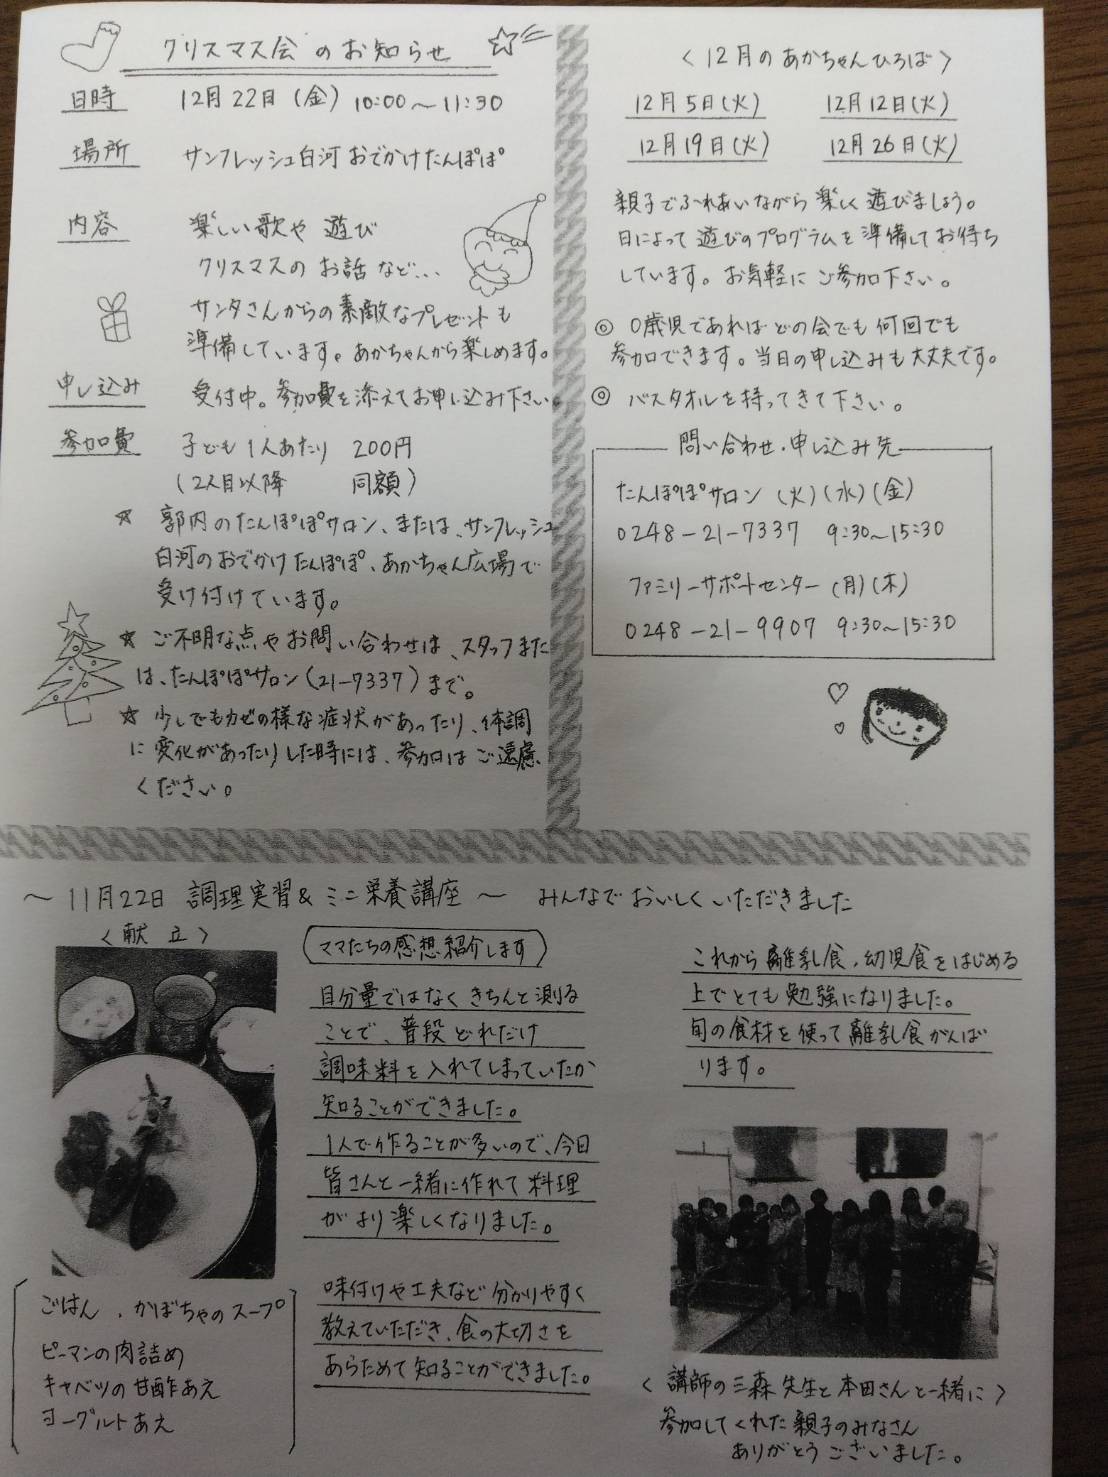 クリスマス会のお知らせ
日時 12月22日(金) 10:00～11:30
場所 サンフレッシュ白河 おでかけたんぽぽ
内容 楽しい歌や 遊び
クリスマスの お話など...
サンタさんからの素敵なプレゼントも
準備しています。あかちゃんから楽しめます。
申し込み 受付中。参加費を添えてお申し込み下さい。
参加費 子ども1人あたり 200円
(2人目以降 同額)
☆ 郭内のたんぽぽサロン、または、サンフレッシュ
白河のおでかけたんぽぽ、あかちゃん広場で
受け付けています。
☆ ご不明な点やお問い合わせは、スタッフまた
は、たんぽぽサロン(21-7337)まで。
☆ 少しでもカゼの様な症状があったり、体調
に変化があったりした時には、参加はご遠慮
ください。
<12月のあかちゃんひろば>
12月5日(火) 12月12日(火)
12月19日(火) 12月26日(火)
親子でふれあいながら楽しく遊びましょう。
日によって遊びのプログラムを準備してお待ち
しています。お気軽にご参加下さい。
◎ 0歳児であればどの会でも何回でも
参加できます。当日の申し込みも大丈夫です。
◎ バスタオルを持ってきて下さい。
問い合わせ・申し込み先
たんぽぽサロン (火)(水)(金)
0248-21-7337 9:30～15:30
ファミリーサポートセンター (月)(木)
0248-21-9907 9:30～15:30
～11月22日 調理実習&ミニ栄養講座～ みんなでおいしくいただきました
<献立>
ごはん、かぼちゃのスープ
ピーマンの肉詰め
キャベツの甘酢あえ
ヨーグルトあえ
ママたちの感想紹介します
目分量ではなくきちんと測る
ことで、普段どれだけ
調味料を入れてしまっていたか
知ることができました。
1人で作ることが多いので、今日
皆さんと一緒に作れて料理
がより楽しくなりました。
味付けや工夫など分かりやすく
教えていただき、食の大切さを
あらためて知ることができました。
これから離乳食、幼児食をはじめる
上でとても勉強になりました。
旬の食材を使って離乳食がんば
ります。
<講師の三森先生と本田さんと一緒に>
参加してくれた親子のみなさん
ありがとうございました。